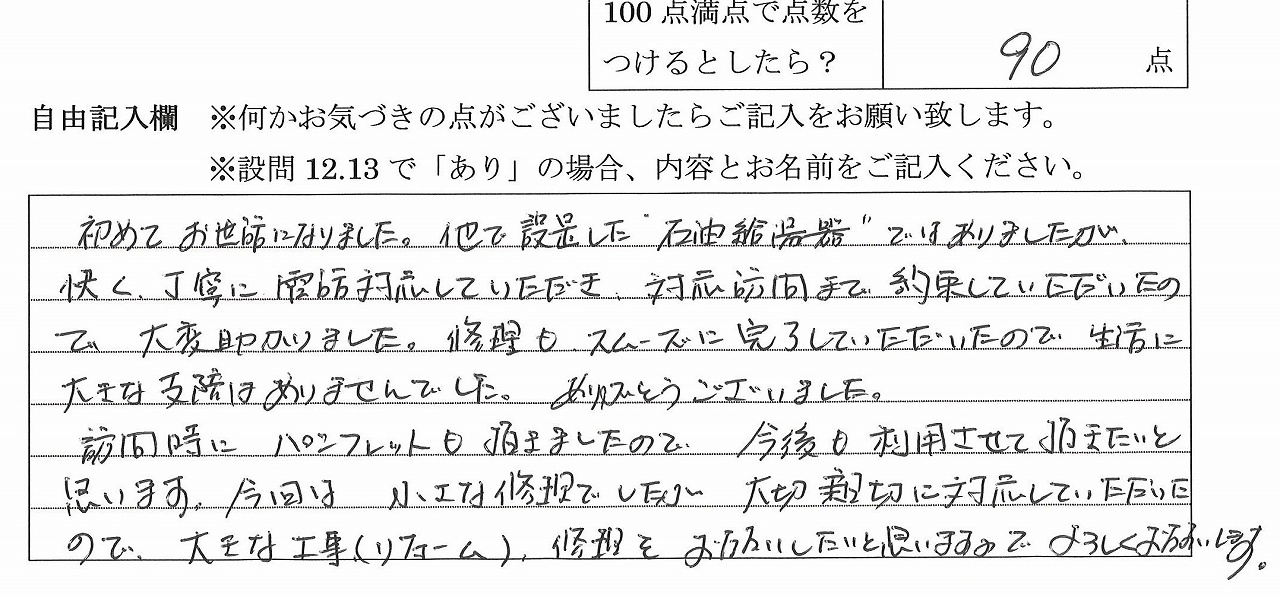 100点満点で点数を
つけるとしたら？ 90 点
自由記入欄 ※何かお気づきの点がございましたらご記入をお願い致します。
※設問12.13で「あり」の場合、内容とお名前をご記入ください。
初めてお世話になりました。他で設置した"石油給湯器"ではありましたが、
快く、丁寧に電話対応していただき、対応訪問まで約束していただいたの
で、大変助かりました。修理もスムーズに完了していただいたので生活に
大きな支障はありませんでした。ありがとうございました。
訪問時にパンフレットも頂きましたので今後も利用させて頂きたいと
思います。今回は小さな修理でしたが大切親切に対応していただいた
ので、大きな工事(リフォーム)、修理をお願いしたいと思いますのでよろしくお願いします。